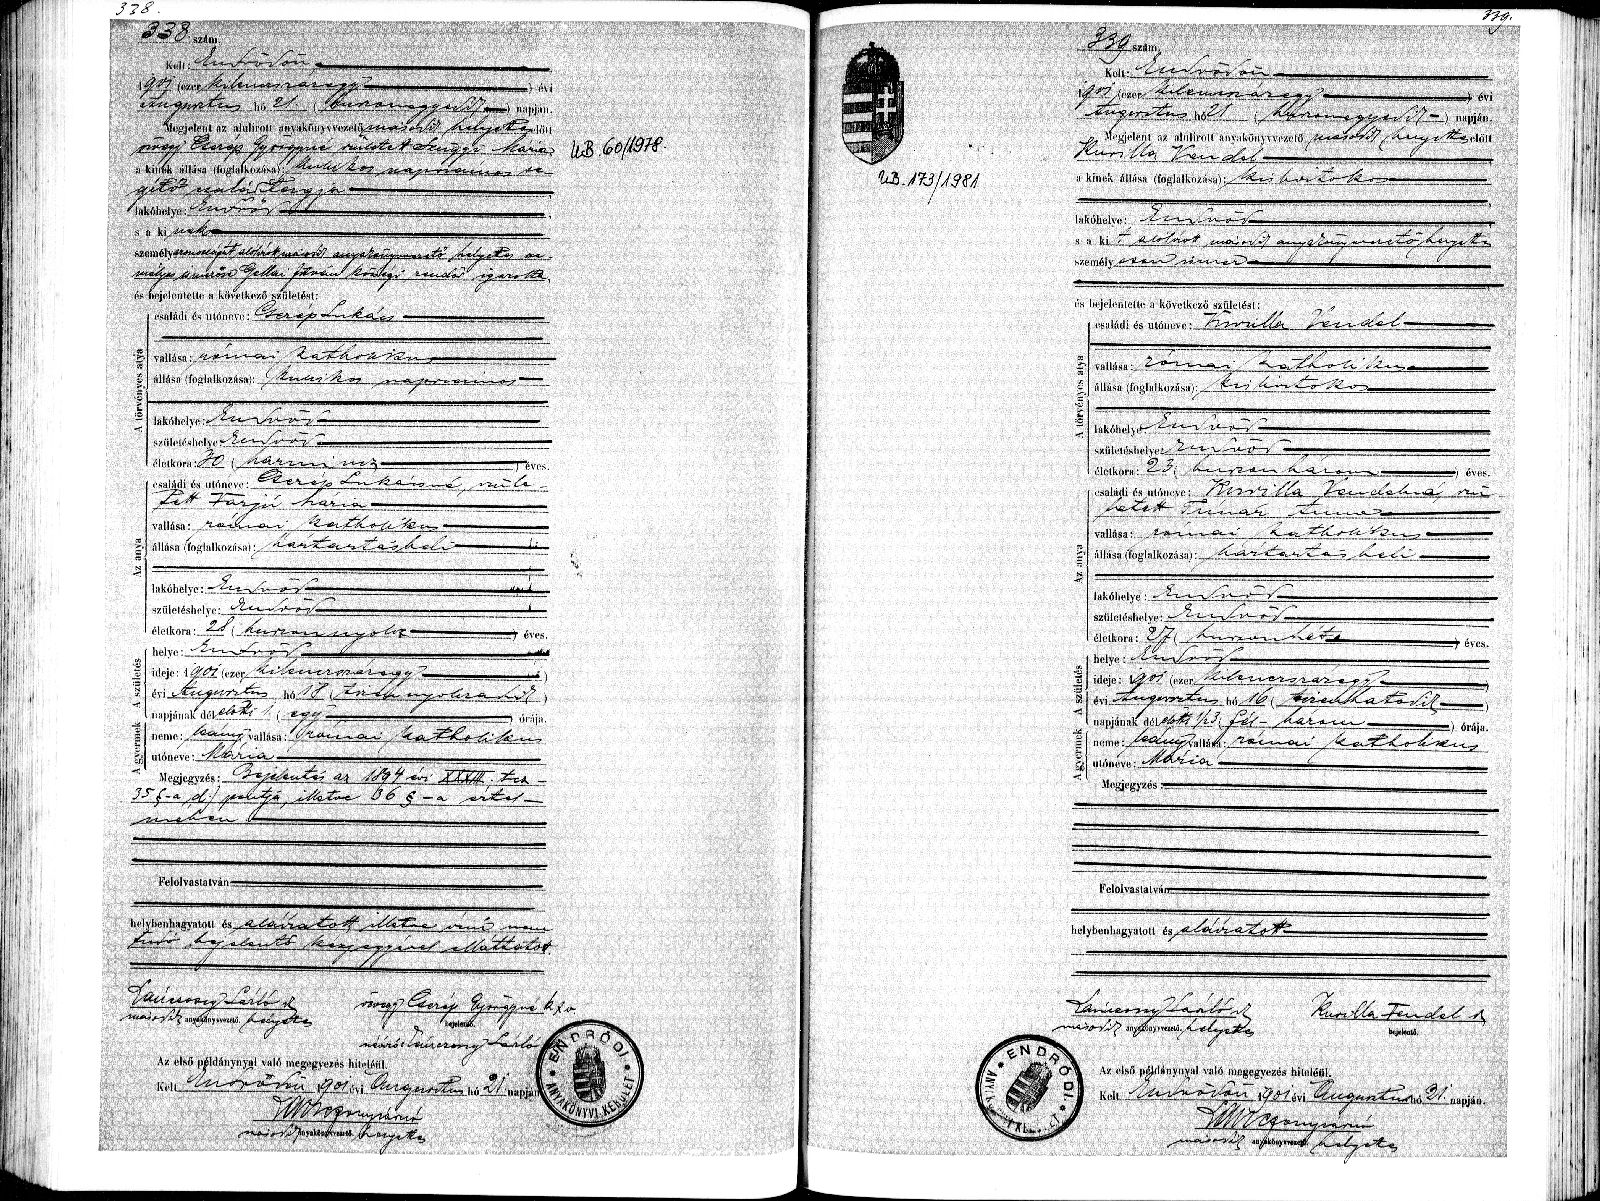 338.
338 szám.
Kelt: Endrődön
1901 (ezer kilenczszázegy) évi
Augusztus hó 21. (huszonegyedik) napján.
Megjelent az alulirott anyakönyvvezető második helyettes előtt
özvegy Cserép Györgyné született Mária
a kinek állása (foglalkozása): kubikos napszámos se-
gítő családtagja
lakóhelye: Endrőd
s a kinek
személyazonosságát alólirott második anyakönyvvezető helyettes sze-
mélyes ismerőse Gellai István községi rendőr igazolta,
és bejelentette a következő születést:
A törvényes atya
családi és utóneve: Cserép Lukács
vallása: római katholikus
állása (foglalkozása): kubikos napszámos
lakóhelye: Endrőd
születéshelye: Endrőd
életkora: 30 (harmincz) éves.
Az anya
családi és utóneve: Cserép Lukácsné, szüle-
tett Farjú Mária
vallása: római katholikus
állása (foglalkozása): háztartásbeli
lakóhelye: Endrőd
születéshelye: Endrőd
életkora: 28 (huszonnyolcz) éves.
A születés
helye: Endrőd
ideje: 1901 (ezer kilenczszázegy)
évi Augusztus hó 18 (tizennyolczadik)
napjának délelőtti 1 (egy) órája.
A gyermek
neme: leány vallása: római katholikus
utóneve: Mária
Megjegyzés: Bejelentés az 1894 évi XXXIII. tcz
35 §-a d.) pontja, illetve 36 §-a értel-
mében
Felolvastatván
helybenhagyatott és aláiratott illetve irni nem
tudó bejelentő kézjegyével elláttatott.
Lánczossy László
második anyakönyvvezető. helyettes
özvegy Cserép Györgyné
bejelentő.
Lánczossy László
Az első példánynyal való megegyezés hiteléül.
Kelt Endrődön 1901 évi Augusztus hó 21. napján.
második anyakönyvvezető. helyettes
ENDRŐDI
ANYAKÖNYVI KERÜLET
UB. 60/1978.
339.
339 szám.
Kelt: Endrődön
1901 (ezer kilenczszázegy) évi
Augusztus hó 21 (huszonegyedik) napján.
Megjelent az alulirott anyakönyvvezető második helyettes előtt
Kurilla Vendel
a kinek állása (foglalkozása): kisbirtokos
lakóhelye: Endrőd
s a kit alólirott második anyakönyvvezető helyettes
személyesen ismer
és bejelentette a következő születést:
A törvényes atya
családi és utóneve: Kurilla Vendel
vallása: római katholikus
állása (foglalkozása): kisbirtokos
lakóhelye: Endrőd
születéshelye: Endrőd
életkora: 23 (huszonhárom) éves.
Az anya
családi és utóneve: Kurilla Vendelné, szü-
letett
vallása: római katholikus
állása (foglalkozása): háztartásbeli
lakóhelye: Endrőd
születéshelye: Endrőd
életkora: 27 (huszonhét) éves.
A születés
helye: Endrőd
ideje: 1901 (ezer kilenczszázegy)
évi Augusztus hó 16 (tizenhatodik)
napjának délelőtti 1/23 (fél-három) órája.
A gyermek
neme: leány vallása: római katholikus
utóneve: Mária
Megjegyzés:
Felolvastatván
helybenhagyatott és aláiratott
Lánczossy László
második anyakönyvvezető. helyettes
Kurilla Vendel
bejelentő.
Az első példánynyal való megegyezés hiteléül.
Kelt Endrődön 1901 évi Augusztus hó 21. napján.
második anyakönyvvezető. helyettes
ENDRŐDI
UB. 173/1981